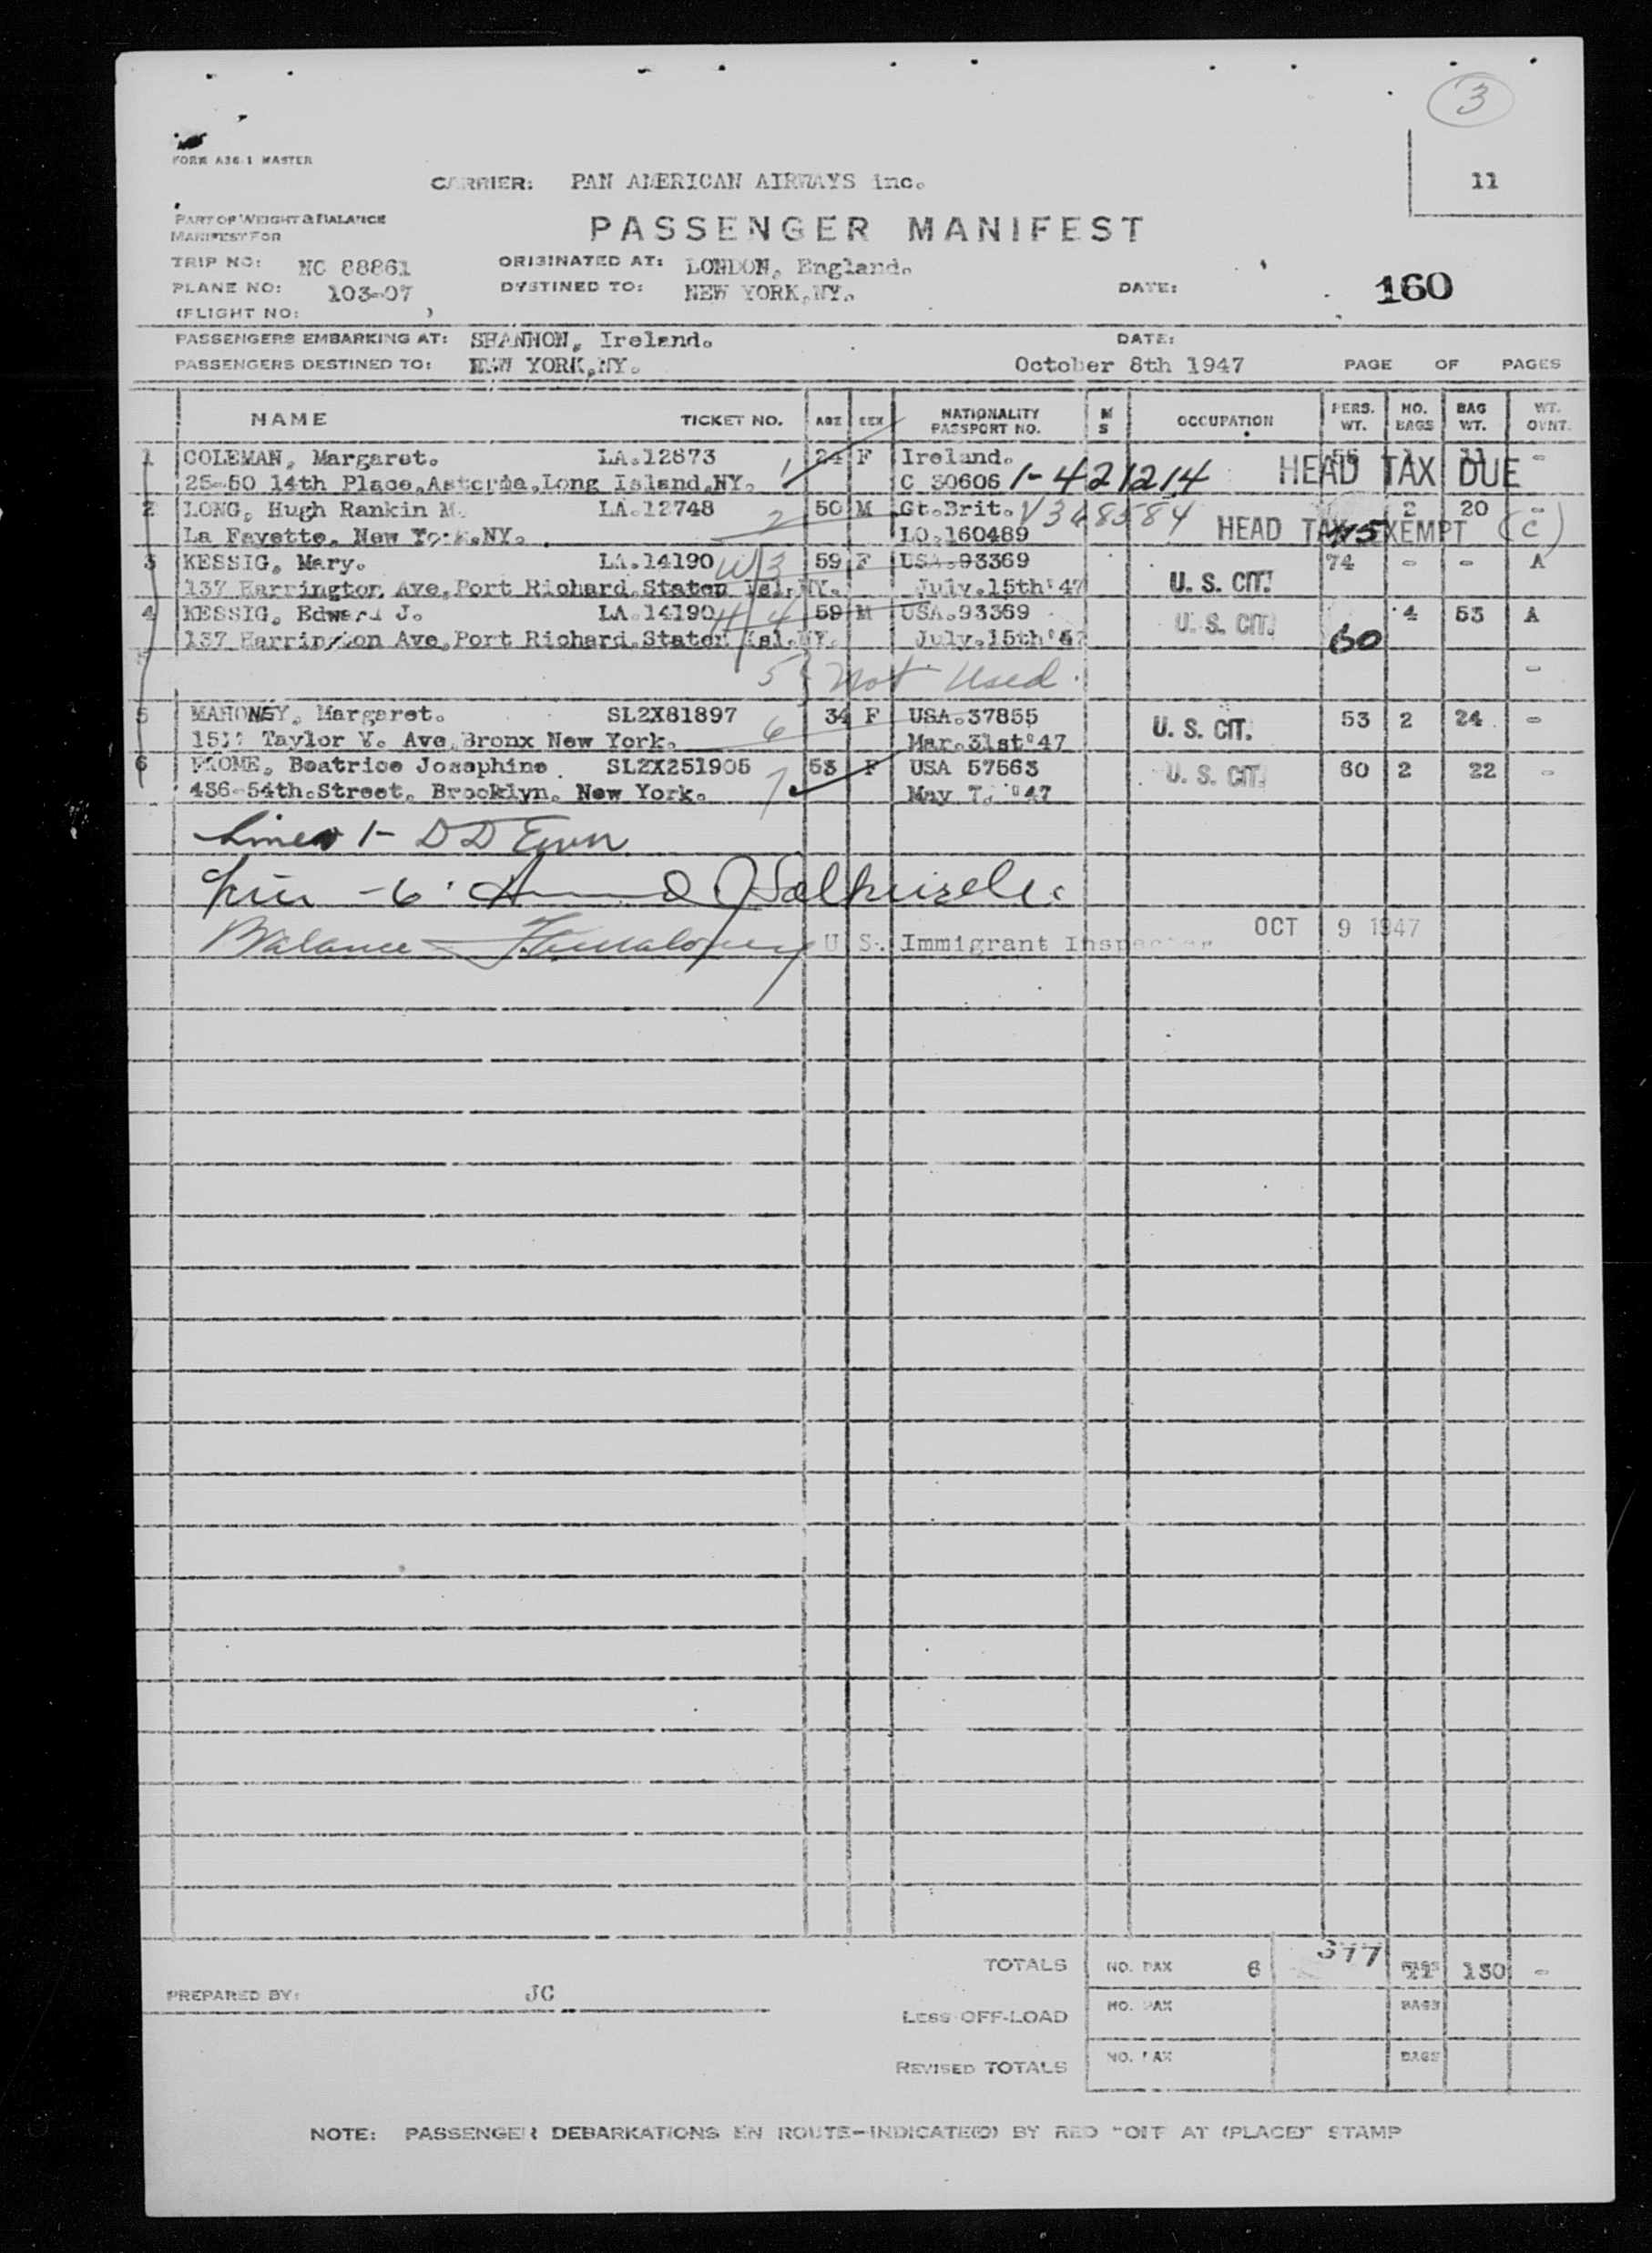 3
FORM A36-1 MASTER
11
CARRIER: PAN AMERICAN AIRWAYS inc.
PART OF WEIGHT & BALANCE
MANIFEST FOR
PASSENGER MANIFEST
TRIP NO: NC 88861 ORIGINATED AT: LONDON, England.
PLANE NO: 103-07 DESTINED TO: NEW YORK,NY. DATE: 160
(FLIGHT NO: )
PASSENGERS EMBARKING AT: SHANNON, Ireland. DATE:
PASSENGERS DESTINED TO: NEW YORK,NY. October 8th 1947 PAGE OF PAGES
NAME TICKET NO. AGE SEX NATIONALITY PASSPORT NO. M S OCCUPATION PERS. WT. NO. BAGS BAG WT. WT. OVNT.
1 COLEMAN, Margaret. LA.12873 24 F Ireland. -
25-50 14th Place,Astoria,Long Island,NY. 1 C 30606 1-421214 HEAD TAX DUE
2 LONG, Hugh Rankin M. LA.12748 2 50 M Gt.Brit. V368584 2 20 -
La Fayette, New York,NY. LO.160489 HEAD TAX EXEMPT (C)
3 KESSIG, Mary. LA.14190 3 59 F USA.93369 74 - - A
137 Harrington Ave,Port Richard,Staten Isl.NY. July.15th'47 U. S. CIT.
4 KESSIG, Edward J. LA.14190 4 59 M USA.93369 4 53 A
137 Harrington Ave,Port Richard,Staten Isl.NY. July.15th'47 U. S. CIT. 60
5 Not Used -
5 MAHONEY, Margaret. SL2X81897 6 34 F USA.37855 U. S. CIT. 53 2 24 -
Taylor V. Ave,Bronx New York. Mar.31st'47
6 FROME, Beatrice Josephine SL2X251905 7 53 F USA 57563 U. S. CIT. 80 2 22 -
436-54th.Street, Brooklyn, New York. May 7. '47
Line 1-
Line -6
Balance U S. Immigrant Inspector OCT 9 1947
TOTALS NO. PAX 6 377 BAGS 11 130 -
PREPARED BY: JC
LESS OFF-LOAD NO. PAX BAGS
REVISED TOTALS NO. PAX BAGS
NOTE: PASSENGER DEBARKATIONS EN ROUTE-INDICATE(D) BY RED "OFF AT (PLACE)" STAMP